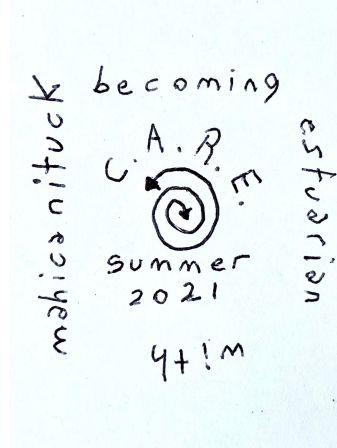 becoming
estuarian
with
mahicanituck
C.A.R.E.
summer
2021